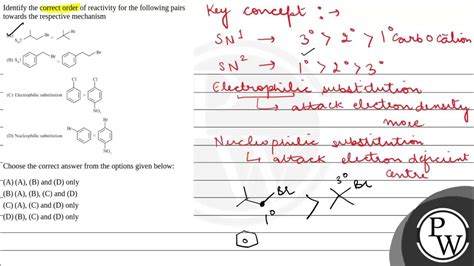 Identify the correct order of reactivity for the following pairs
towards the respective mechanism
Br > Br
(B) SN1 Br > Br
(C) Electrophilic substitution Cl > Cl NO2
(D) Nucleophilic substitution Br > Br NO2
Choose the correct answer from the options given below:
(A) (A), (B) and (D) only
(B) (A), (B), (C) and (D)
(C) (A), (C) and (D) only
(D) (B), (C) and (D) only
Key concept :→
SN1 → 3° > 2° > 1° carbocation
SN2 → 1° > 2° > 3°
Electrophilic substitution
↳ attack electron density
more
Nucleophilic substitution
↳ attack electron deficient
centre
Br 1° > 3° Br
PW